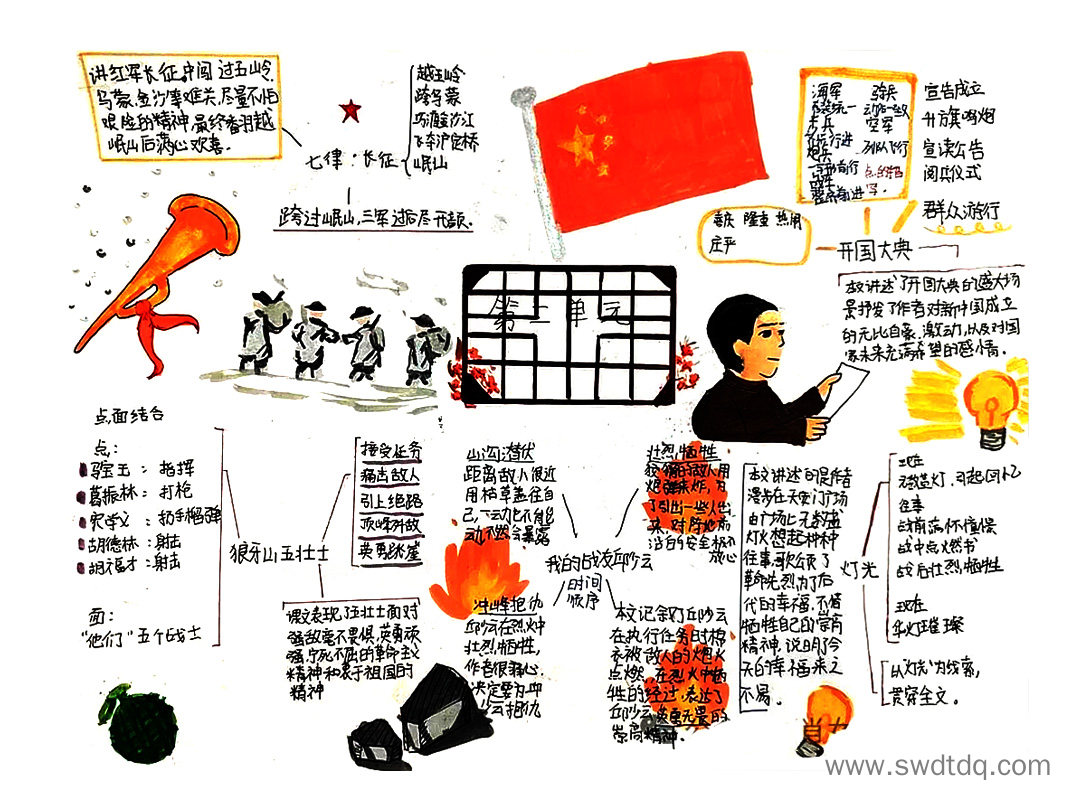 讲红军长征中闯过五岭、
乌蒙、金沙等难关,尽量不怕
艰险的精神,最终翻越
岷山后满心欢喜.
七律:长征
越五岭
跨乌蒙
巧渡金沙江
飞夺泸定桥
岷山
跨过岷山,三军过后尽开颜.
海军
骑兵
步兵
空军
列队飞行
炮兵
宣告成立
升旗鸣炮
宣读公告
阅兵仪式
群众游行
喜庆 隆重 热闹
庄严
开国大典
本文讲述了开国大典的盛大场
景抒发了作者对新中国成立
的无比自豪、激动,以及对国
家未来充满希望的感情.
第二单元
点面结合
点:
马宝玉:指挥
葛振林:打枪
宋学义:扔手榴弹
胡德林:射击
胡福才:射击
面:
"他们"五个战士
狼牙山五壮士
接受任务
痛击敌人
引上绝路
顶峰歼敌
英勇跳崖
课文表现了五壮士面对
强敌毫不畏惧,英勇顽
强,宁死不屈的革命主义
精神和忠于祖国的
精神
山沟潜伏
距离敌人很近
用枯草盖住自
己,一动也不能
动,不然会暴露
壮烈牺牲
狡猾的敌人用
炮弹来炸,为
了引出一些人出
来,对阵地前
沿的安全极不
放心
我的战友邱少云
时间
顺序
冲峰抱仇
邱少云在烈火中
壮烈牺牲,
作者很痛心
决定要为邱
少云报仇
本文记叙了丘少云
在执行任务时棉
衣被敌人的炮火
点燃,在烈火中牺
牲的经过,表达了
丘少云英勇无畏的
崇高精神.
本文讲述的是作者
漫步在天安门广场
由广场上无数盏
灯火想起种种
往事,歌颂了
革命先烈为了后
代的幸福,不惜
牺牲自己的崇高
精神,说明了今
天的幸福来之
不易.
灯光
现在
璀璨灯,引起回忆
往事
战前满怀憧憬
战中点燃书
战后壮烈牺牲
现在
华灯璀璨
以"灯光"为线索,
贯穿全文.
www.swdtdq.com